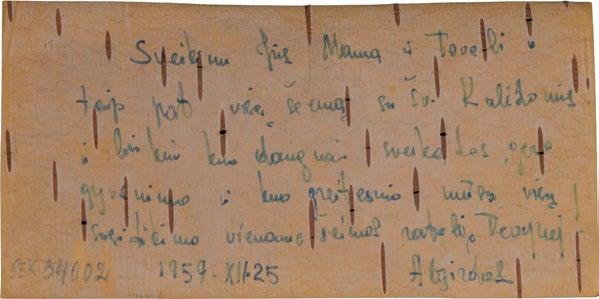 Sveikinu Jus Mama ir Tėveli
taip pat visą šeimą su šv. Kalėdomis
ir linkiu kuo daugiau sveikatos, gero
gyvenimo ir kuo greitesnio mūsų visų
susitikimo viename šeimos ratelį, Tėvynėj!
GEK 34902 1957-XII-25 Algirdas